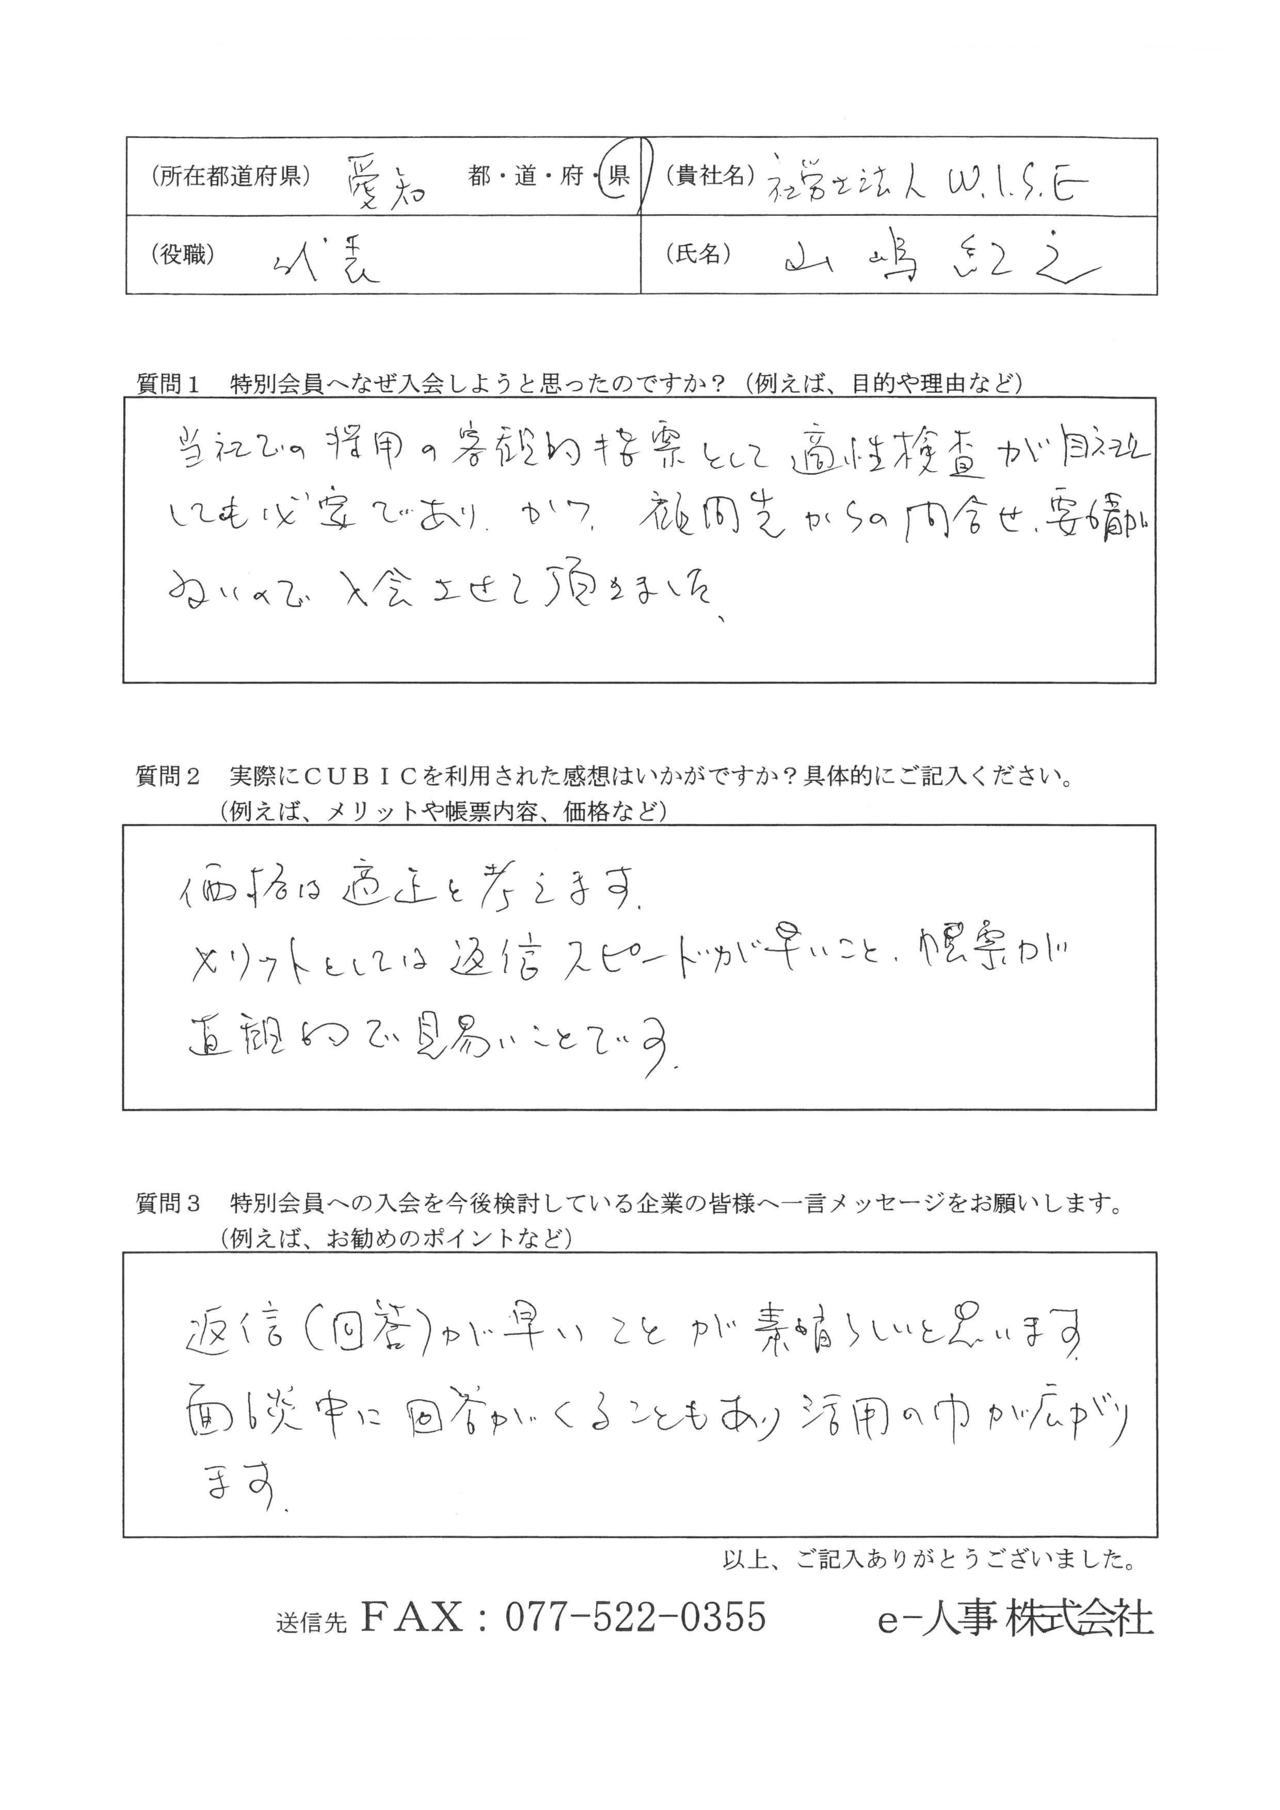 （所在都道府県） 愛知 都・道・府・県 （貴社名） 社労士法人 W.I.S.E
（役職） 代表 （氏名） 山嶋紅之
質問１　特別会員へなぜ入会しようと思ったのですか？（例えば、目的や理由など）
当社での採用の客観的指票として適性検査が自社と
しても必要であり、かつ、顧問先からの問合せ、要請が
多いので入会させて頂きました、
質問２　実際にＣＵＢＩＣを利用された感想はいかがですか？具体的にご記入ください。
（例えば、メリットや帳票内容、価格など）
価格は適正と考えます.
メリットとしては返信スピードが早いこと、帳票が
直観的で見易いことです.
質問３　特別会員への入会を今後検討している企業の皆様へ一言メッセージをお願いします。
（例えば、お勧めのポイントなど）
返信（回答）が早いことが素晴らしいと思います.
面談中に回答がくることもあり活用の巾が広がり
ます.
以上、ご記入ありがとうございました。
送信先 ＦＡＸ：077-522-0355　e-人事 株式会社